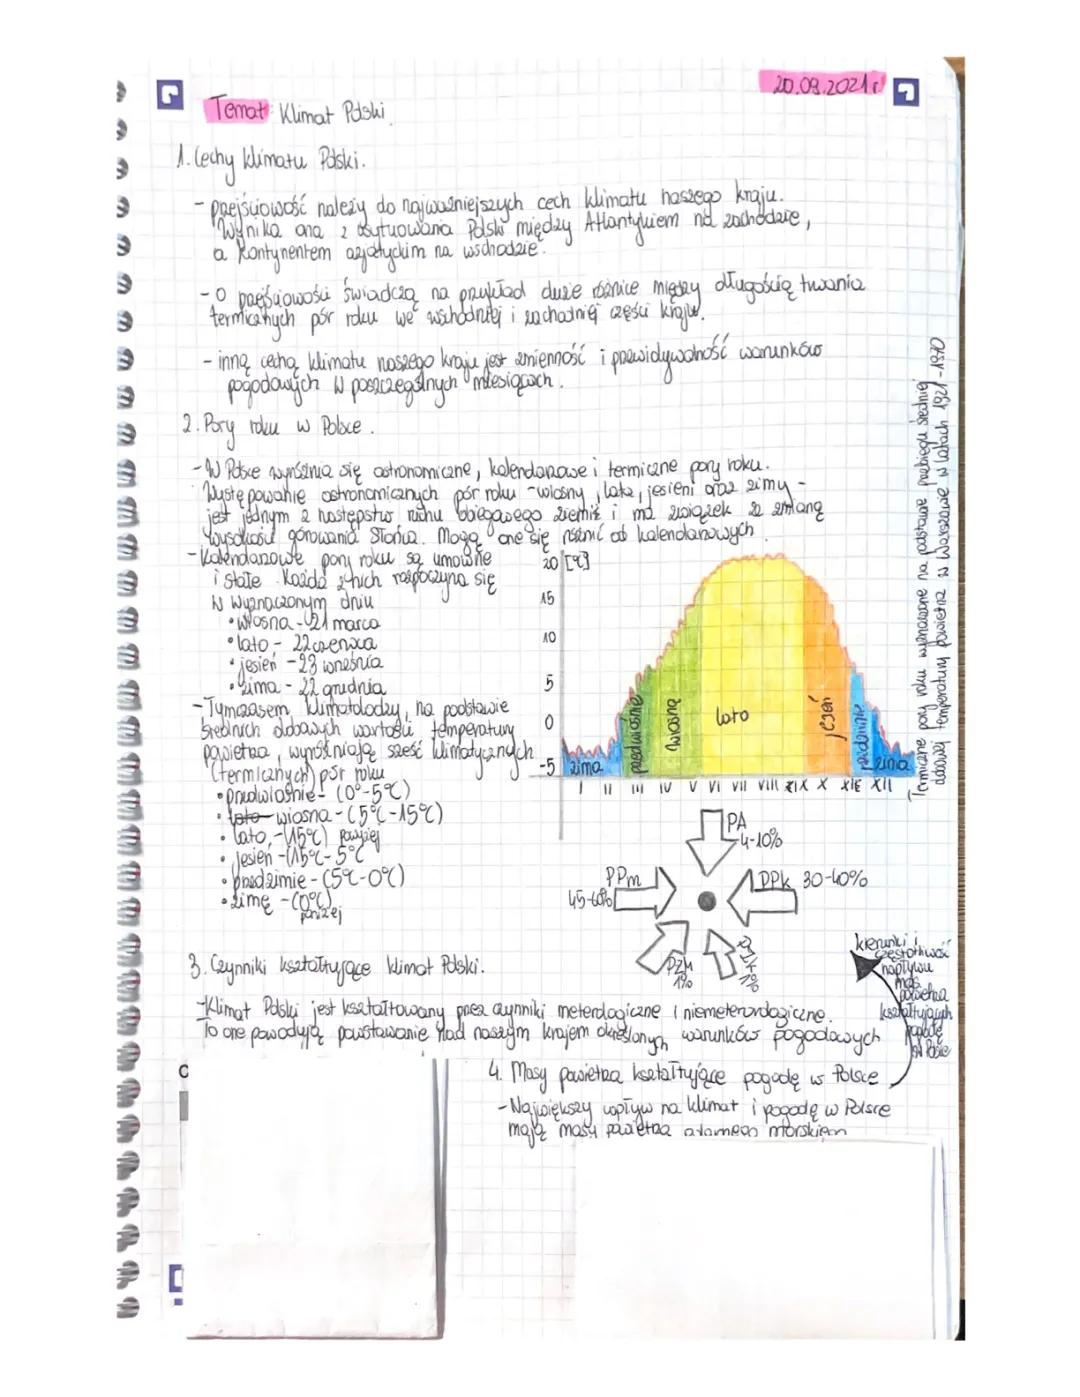 20.09.2021r
Temat: Klimat Polski
1. Cechy klimatu Polski.
- przejściowość należy do najważniejszych cech klimatu naszego kraju.
Wynika ona z usytuowania Polski między Atlantykiem na zachodzie,
a kontynentem azjatyckim na wschodzie.
- O przejściowości świadczą na przykład duże różnice między długością trwania
termicznych pór roku we wschodniej i zachodniej części kraju.
- inną cechą klimatu naszego kraju jest zmienność i przewidywalność warunków
pogodowych w poszczególnych miesiącach.
2. Pory roku w Polsce.
- W Polsce wyróżnia się astronomiczne, kalendarzowe i termiczne pory roku.
Występowanie astronomicznych pór roku - wiosny, lata, jesieni oraz zimy -
jest jednym z następstw ruchu obiegowego ziemi i ma związek ze zmianą
wysokości górowania Słońca. Mogą one się różnić od kalendarzowych.
- Kalendarzowe pory roku są umowne
i stałe. Każda z nich rozpoczyna się
w wyznaczonym dniu
• wiosna - 21 marca
• lato - 22 czerwca
• jesień - 23 września
• zima - 22 grudnia
- Tymczasem klimatolodzy, na podstawie
średnich dobowych wartości temperatury
powietrza, wyróżniają sześć klimatycznych
(termicznych) pór roku
• przedwiośnie - (0°-5°C)
• wiosna - (5°C-15°C)
• lato, - (15°C) powyżej
• jesień - (15°C - 5°C
• przedzimie - (5°C-0°C)
• zimę - (0°C)
poniżej
20 [°C]
15
10
5
0
-5
zima
przedwiośnie
wiosna
lato
jesień
przedzimie
zima
I II III IV V VI VII VIII IX X XI XII
Termiczne pory roku wyznaczone na podstawie przebiegu średniej
dobowej temperatury powietrza w Warszawie w latach 1921-1970
PA
4-10%
PPm
45-60%
PPk 30-40%
PZm
1%
kierunki i
częstotliwość
napływu
mas
powietrza
kształtujących
pogodę
w Polsce
3. Czynniki kształtujące klimat Polski.
- Klimat Polski jest kształtowany przez czynniki meteorologiczne i niemeteorologiczne.
To one powodują powstawanie nad naszym krajem określonych warunków pogodowych
4. Masy powietrza kształtujące pogodę w Polsce
- Największy wpływ na klimat i pogodę w Polsce
mają masy powietrza polarnego morskiego